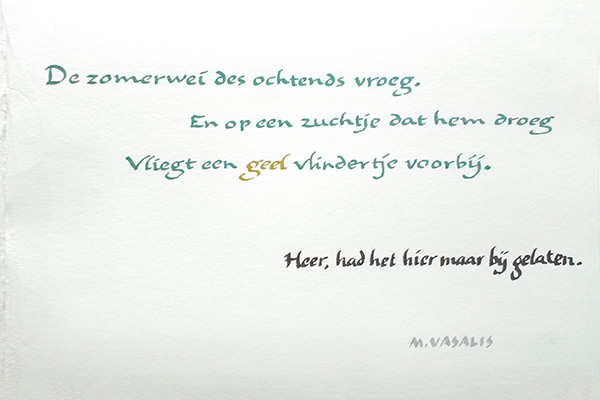 De zomerwei des ochtends vroeg.
En op een zuchtje dat hem droeg
Vliegt een geel vlindertje voorbij.
Heer, had het hier maar bij gelaten.
M. VASALIS